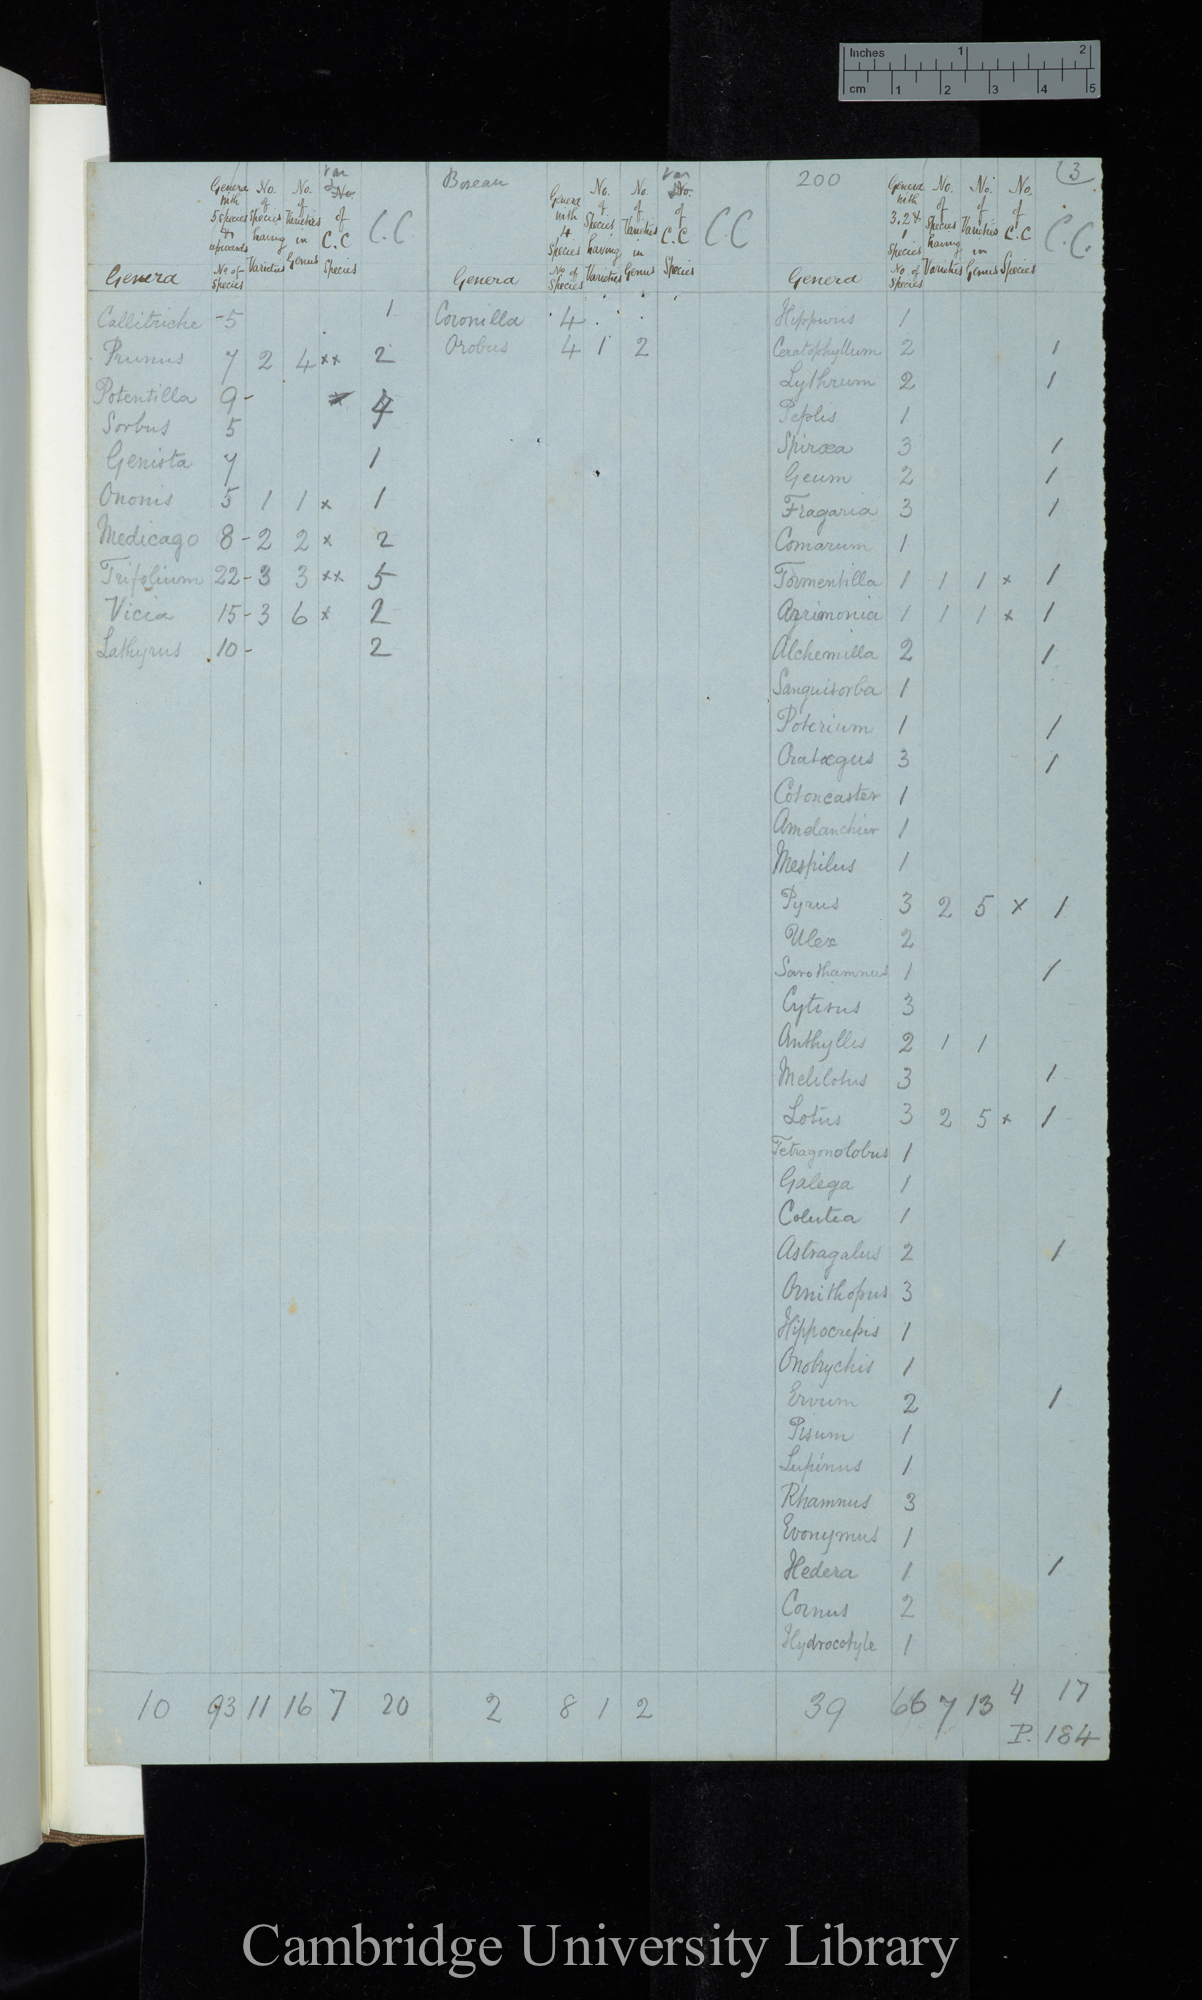 Inches 1 2
cm 1 2 3 4 5
Boreau 200 (3
Genera with 5 species & upwards No. of Species having Varieties No. of Varieties in Genus Var No. of C.C Species C.C
Genera with 4 Species No. of Species having Varieties No. of Varieties in Genus Var No. of C.C Species CC
Genera with 3, 2 & 1 Species No. of Species having Varieties No. of Varieties in Genus No. of C.C Species C.C.
Genera No of Species Genera No of Species Genera No. of Species
Callitriche -5 1
Prunus 7 2 4 ×× 2
Potentilla 9-
Sorbus 5
Genista 7 1
Ononis 5 1 1 × 1
Medicago 8- 2 2 × 2
Trifolium 22- 3 3 ×× 5
Vicia 15- 3 6 × 2
Lathyrus 10- 2
10 93 11 16 7 20
Coronilla 4
Orobus 4 1 2
2 8 1 2
Hippuris 1
Ceratophyllum 2 1
Lythrum 2 1
Peplis 1
Spiræa 3 1
Geum 2 1
Fragaria 3 1
Comarum 1
Tormentilla 1 1 1 × 1
Agrimonia 1 1 1 × 1
Alchemilla 2 1
Sanguisorba 1
Poterium 1 1
Cratægus 3 1
Cotoneaster 1
Amelanchier 1
Mespilus 1
Pyrus 3 2 5 × 1
Ulex 2
Sarothamnus 1 1
Cytisus 3
Anthyllis 2 1 1
Melilotus 3 1
Lotus 3 2 5 × 1
Tetragonolobus 1
Galega 1
Colutea 1
Astragalus 2 1
Ornithopus 3
Hippocrepis 1
Onobrychis 1
Ervum 2 1
Pisum 1
Lupinus 1
Rhamnus 3
Evonymus 1
Hedera 1 1
Cornus 2
Hydrocotyle 1
39 66 7 13 4 17
P. 184
Cambridge University Library